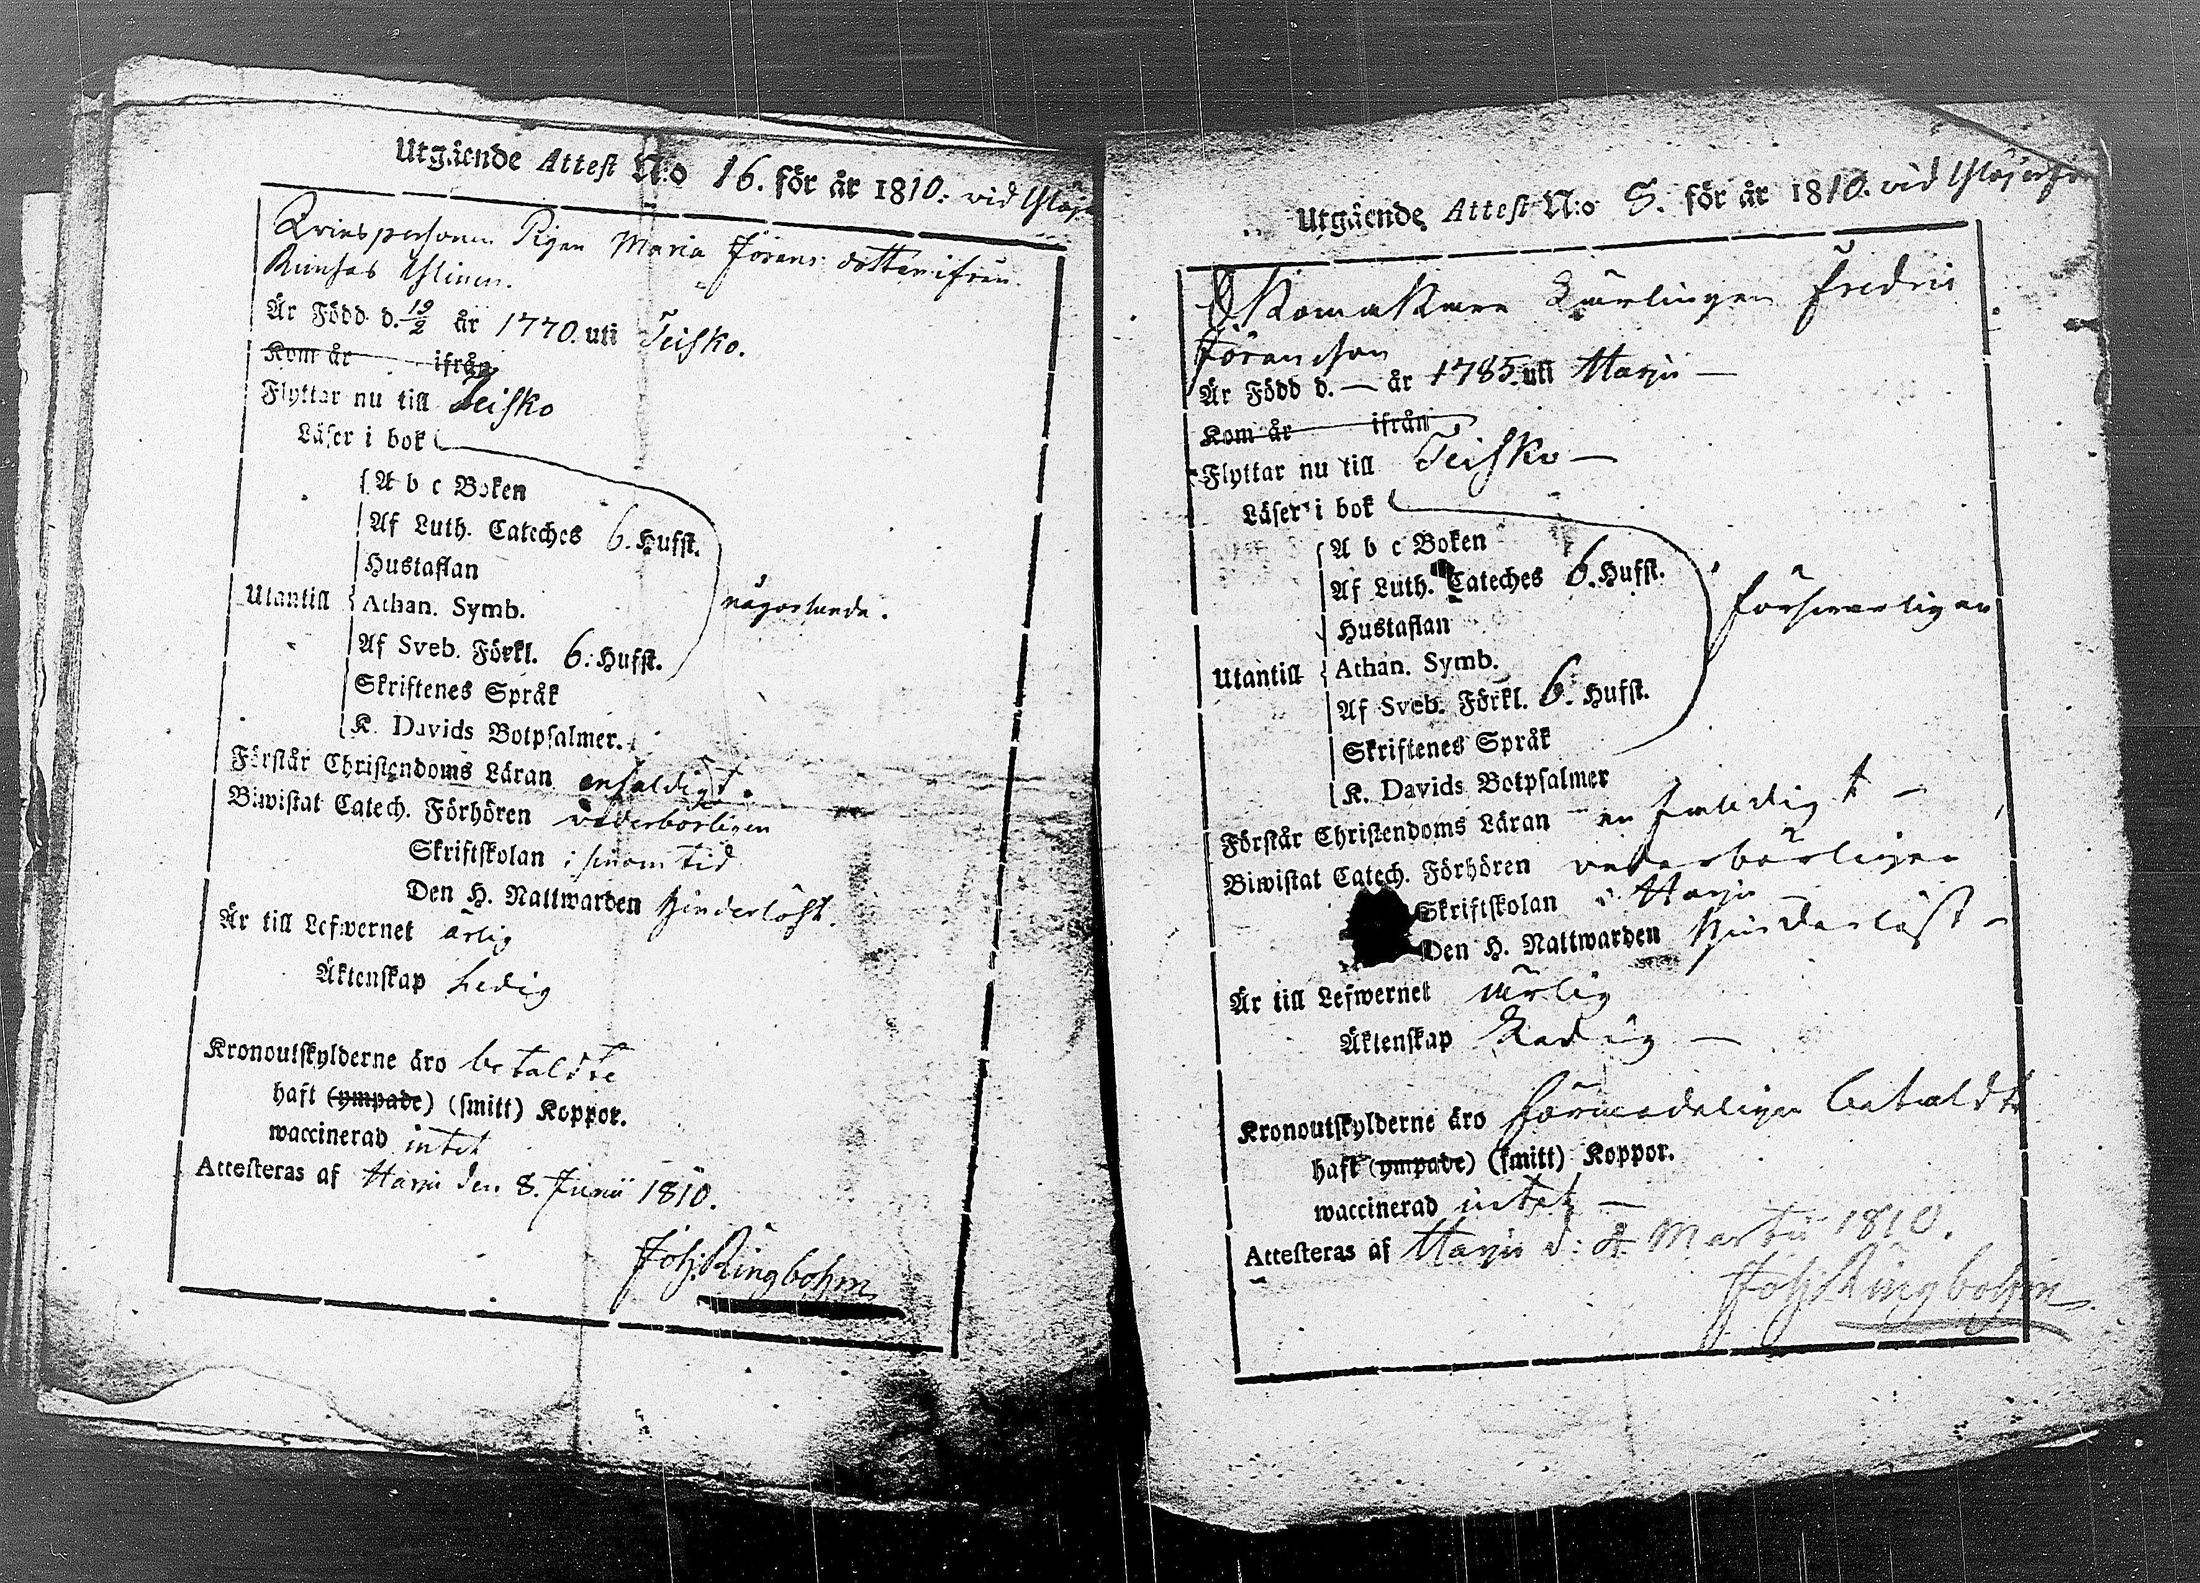 Utgående Attest N:o 16. för år 1810. vid
Qvinspersonen Pigan Maria Jörans dotter ifrån
Är Född d. 19/2 år 1770. uti Teisko.
Kom år ifrån
Flyttar nu till Teisko
Läser i bok
A b c Boken
Af Luth. Cateches 6. Hufst.
Hustaflan
Utantill Athan. Symb. någorlunda.
Af Sveb. Förkl. 6. Hufst.
Skriftenes Språk
K. Davids Botpsalmer.
Förstår Christendoms Läran enfaldigt.
Biwistat Catech. Förhören vederbörligen
Skriftskolan i sinom tid
Den H. Nattwarden hinderlöst.
Är till Lefwernet ärlig
Äktenskap Ledig
Kronoutskylderne äro betaldte
haft (ympade) (smitt) Koppor.
waccinerad intet
Attesteras af Harju den 8. Junii 1810.
Joh: Ringbohm
Utgående Attest N:o 8. för år 1810. vid
Skomakare Lärlingen Fredric
Jöransson
Är Född d. — år 1785. uti Harju —
Kom år ifrån
Flyttar nu till Teisko —
Läser i bok
A b c Boken
Af Luth. Cateches 6. Hufst.
Hustaflan försvarligen
Utantill Athan. Symb.
Af Sveb. Förkl. 6. Hufst.
Skriftenes Språk
K. Davids Botpsalmer
Förstår Christendoms Läran enfaldigt —
Biwistat Catech. Förhören vederbörligen
Skriftskolan i Harju
Den H. Nattwarden hinderlöst —
Är till Lefwernet ärlig
Äktenskap Ledig —
Kronoutskylderne äro förmodeligen betaldte
haft (ympade) (smitt) Koppor.
waccinerad intet —
Attesteras af Harju d: Martii 1810.
Joh: Ringbohm